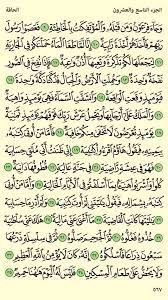 الجزء التاسع والعشرون الحاقة
وَجَآءَ فِرْعَوْنُ وَمَن قَبْلَهُۥ وَٱلْمُؤْتَفِكَٰتُ بِٱلْخَاطِئَةِ ٩ فَعَصَوْا۟ رَسُولَ
رَبِّهِمْ فَأَخَذَهُمْ أَخْذَةً رَّابِيَةً ١٠ إِنَّا لَمَّا طَغَا ٱلْمَآءُ حَمَلْنَٰكُمْ فِى ٱلْجَارِيَةِ ١١
لِنَجْعَلَهَا لَكُمْ تَذْكِرَةً وَتَعِيَهَآ أُذُنٌ وَٰعِيَةٌ ١٢ فَإِذَا نُفِخَ فِى ٱلصُّورِ نَفْخَةٌ
وَٰحِدَةٌ ١٣ وَحُمِلَتِ ٱلْأَرْضُ وَٱلْجِبَالُ فَدُكَّتَا دَكَّةً وَٰحِدَةً ١٤ فَيَوْمَئِذٍ
وَقَعَتِ ٱلْوَاقِعَةُ ١٥ وَٱنشَقَّتِ ٱلسَّمَآءُ فَهِىَ يَوْمَئِذٍ وَاهِيَةٌ ١٦ وَٱلْمَلَكُ
عَلَىٰٓ أَرْجَآئِهَا وَيَحْمِلُ عَرْشَ رَبِّكَ فَوْقَهُمْ يَوْمَئِذٍ ثَمَٰنِيَةٌ ١٧ يَوْمَئِذٍ
تُعْرَضُونَ لَا تَخْفَىٰ مِنكُمْ خَافِيَةٌ ١٨ فَأَمَّا مَنْ أُوتِىَ كِتَٰبَهُۥ بِيَمِينِهِۦ فَيَقُولُ
هَآؤُمُ ٱقْرَءُوا۟ كِتَٰبِيَهْ ١٩ إِنِّى ظَنَنتُ أَنِّى مُلَٰقٍ حِسَابِيَهْ ٢٠ فَهُوَ فِى عِيشَةٍ
رَّاضِيَةٍ ٢١ فِى جَنَّةٍ عَالِيَةٍ ٢٢ قُطُوفُهَا دَانِيَةٌ ٢٣ كُلُوا۟ وَٱشْرَبُوا۟ هَنِيٓـًٔۢا
بِمَآ أَسْلَفْتُمْ فِى ٱلْأَيَّامِ ٱلْخَالِيَةِ ٢٤ وَأَمَّا مَنْ أُوتِىَ كِتَٰبَهُۥ بِشِمَالِهِۦ
فَيَقُولُ يَٰلَيْتَنِى لَمْ أُوتَ كِتَٰبِيَهْ ٢٥ وَلَمْ أَدْرِ مَا حِسَابِيَهْ ٢٦
يَٰلَيْتَهَا كَانَتِ ٱلْقَاضِيَةَ ٢٧ مَآ أَغْنَىٰ عَنِّى مَالِيَهْ ٢٨ هَلَكَ عَنِّى سُلْطَٰنِيَهْ ٢٩
خُذُوهُ فَغُلُّوهُ ٣٠ ثُمَّ ٱلْجَحِيمَ صَلُّوهُ ٣١ ثُمَّ فِى سِلْسِلَةٍ ذَرْعُهَا
سَبْعُونَ ذِرَاعًا فَٱسْلُكُوهُ ٣٢ إِنَّهُۥ كَانَ لَا يُؤْمِنُ بِٱللَّهِ ٱلْعَظِيمِ ٣٣
وَلَا يَحُضُّ عَلَىٰ طَعَامِ ٱلْمِسْكِينِ ٣٤ فَلَيْسَ لَهُ ٱلْيَوْمَ هَٰهُنَا حَمِيمٌ ٣٥
٥٦٧